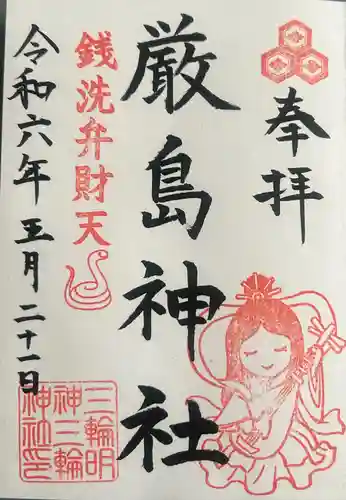 奉拝
厳島神社
銭洗弁財天
令和六年五月二十一日
三輪明
神三輪
神社之印